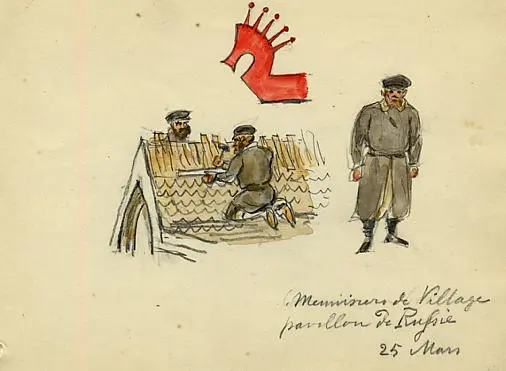 Menuisiers de Village
pavillon de Russie
25 Mars